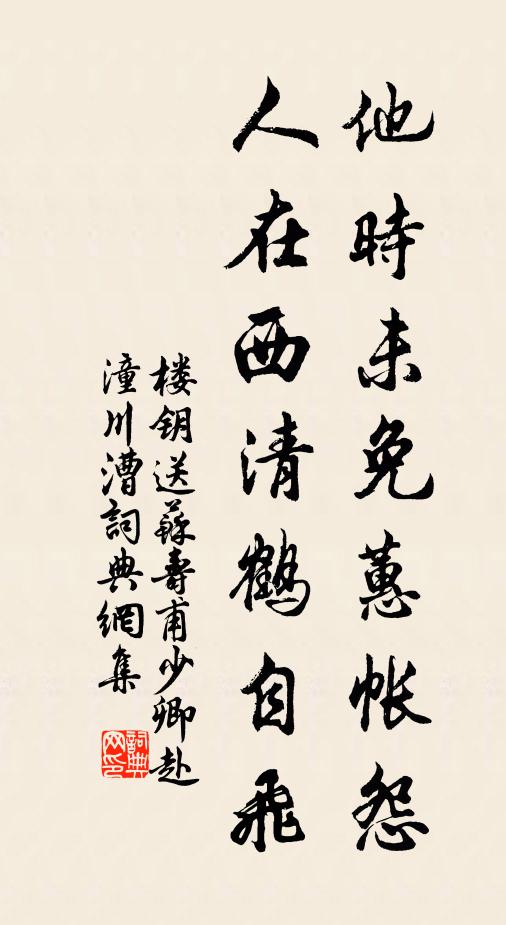 他時未免蕙帐怨
人在西清鹤自飛
楼钥送蘇壽甫少卿赴
潼川漕詞典網集
詞典网印